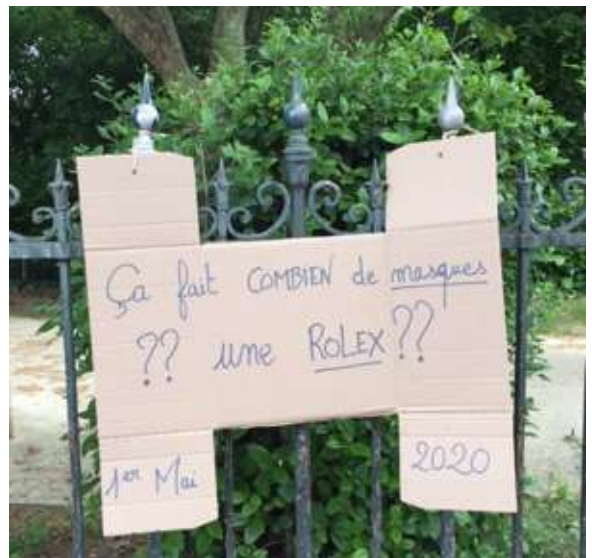 Ça fait COMBIEN de masques
?? une ROLEX ??
1er Mai
2020